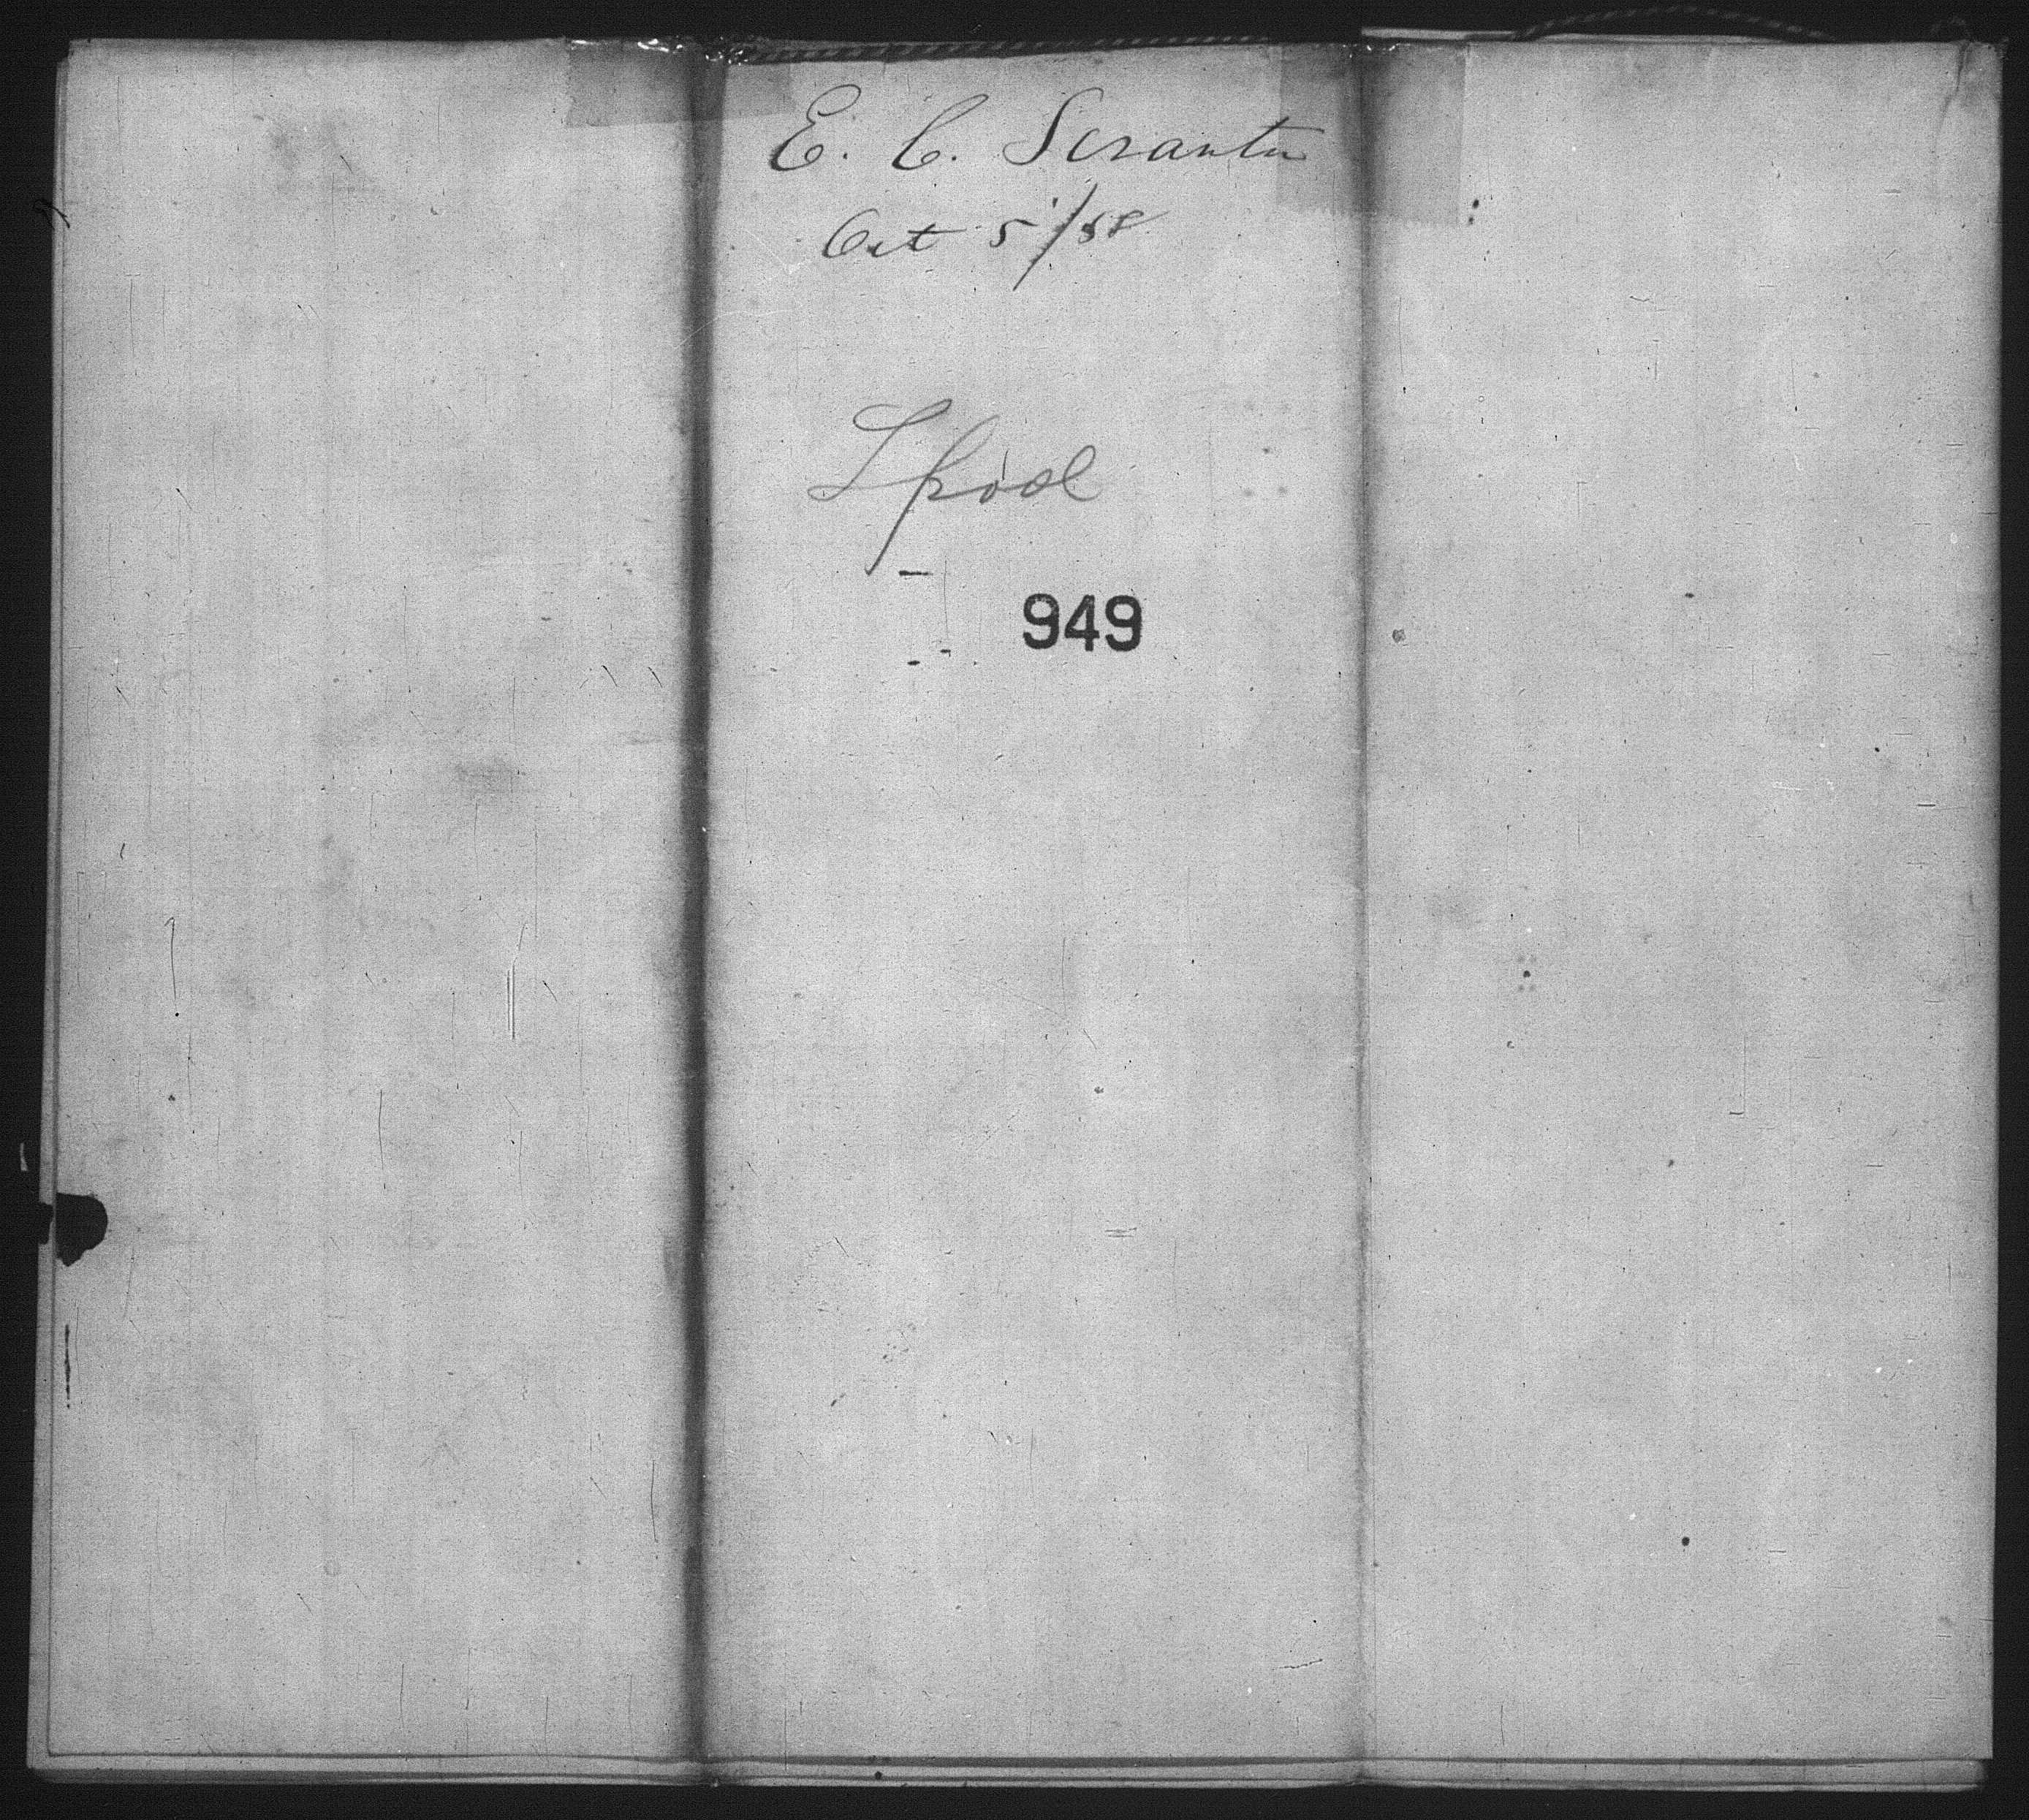 E. C. Scranton
Oct 5/58
Lpool
949